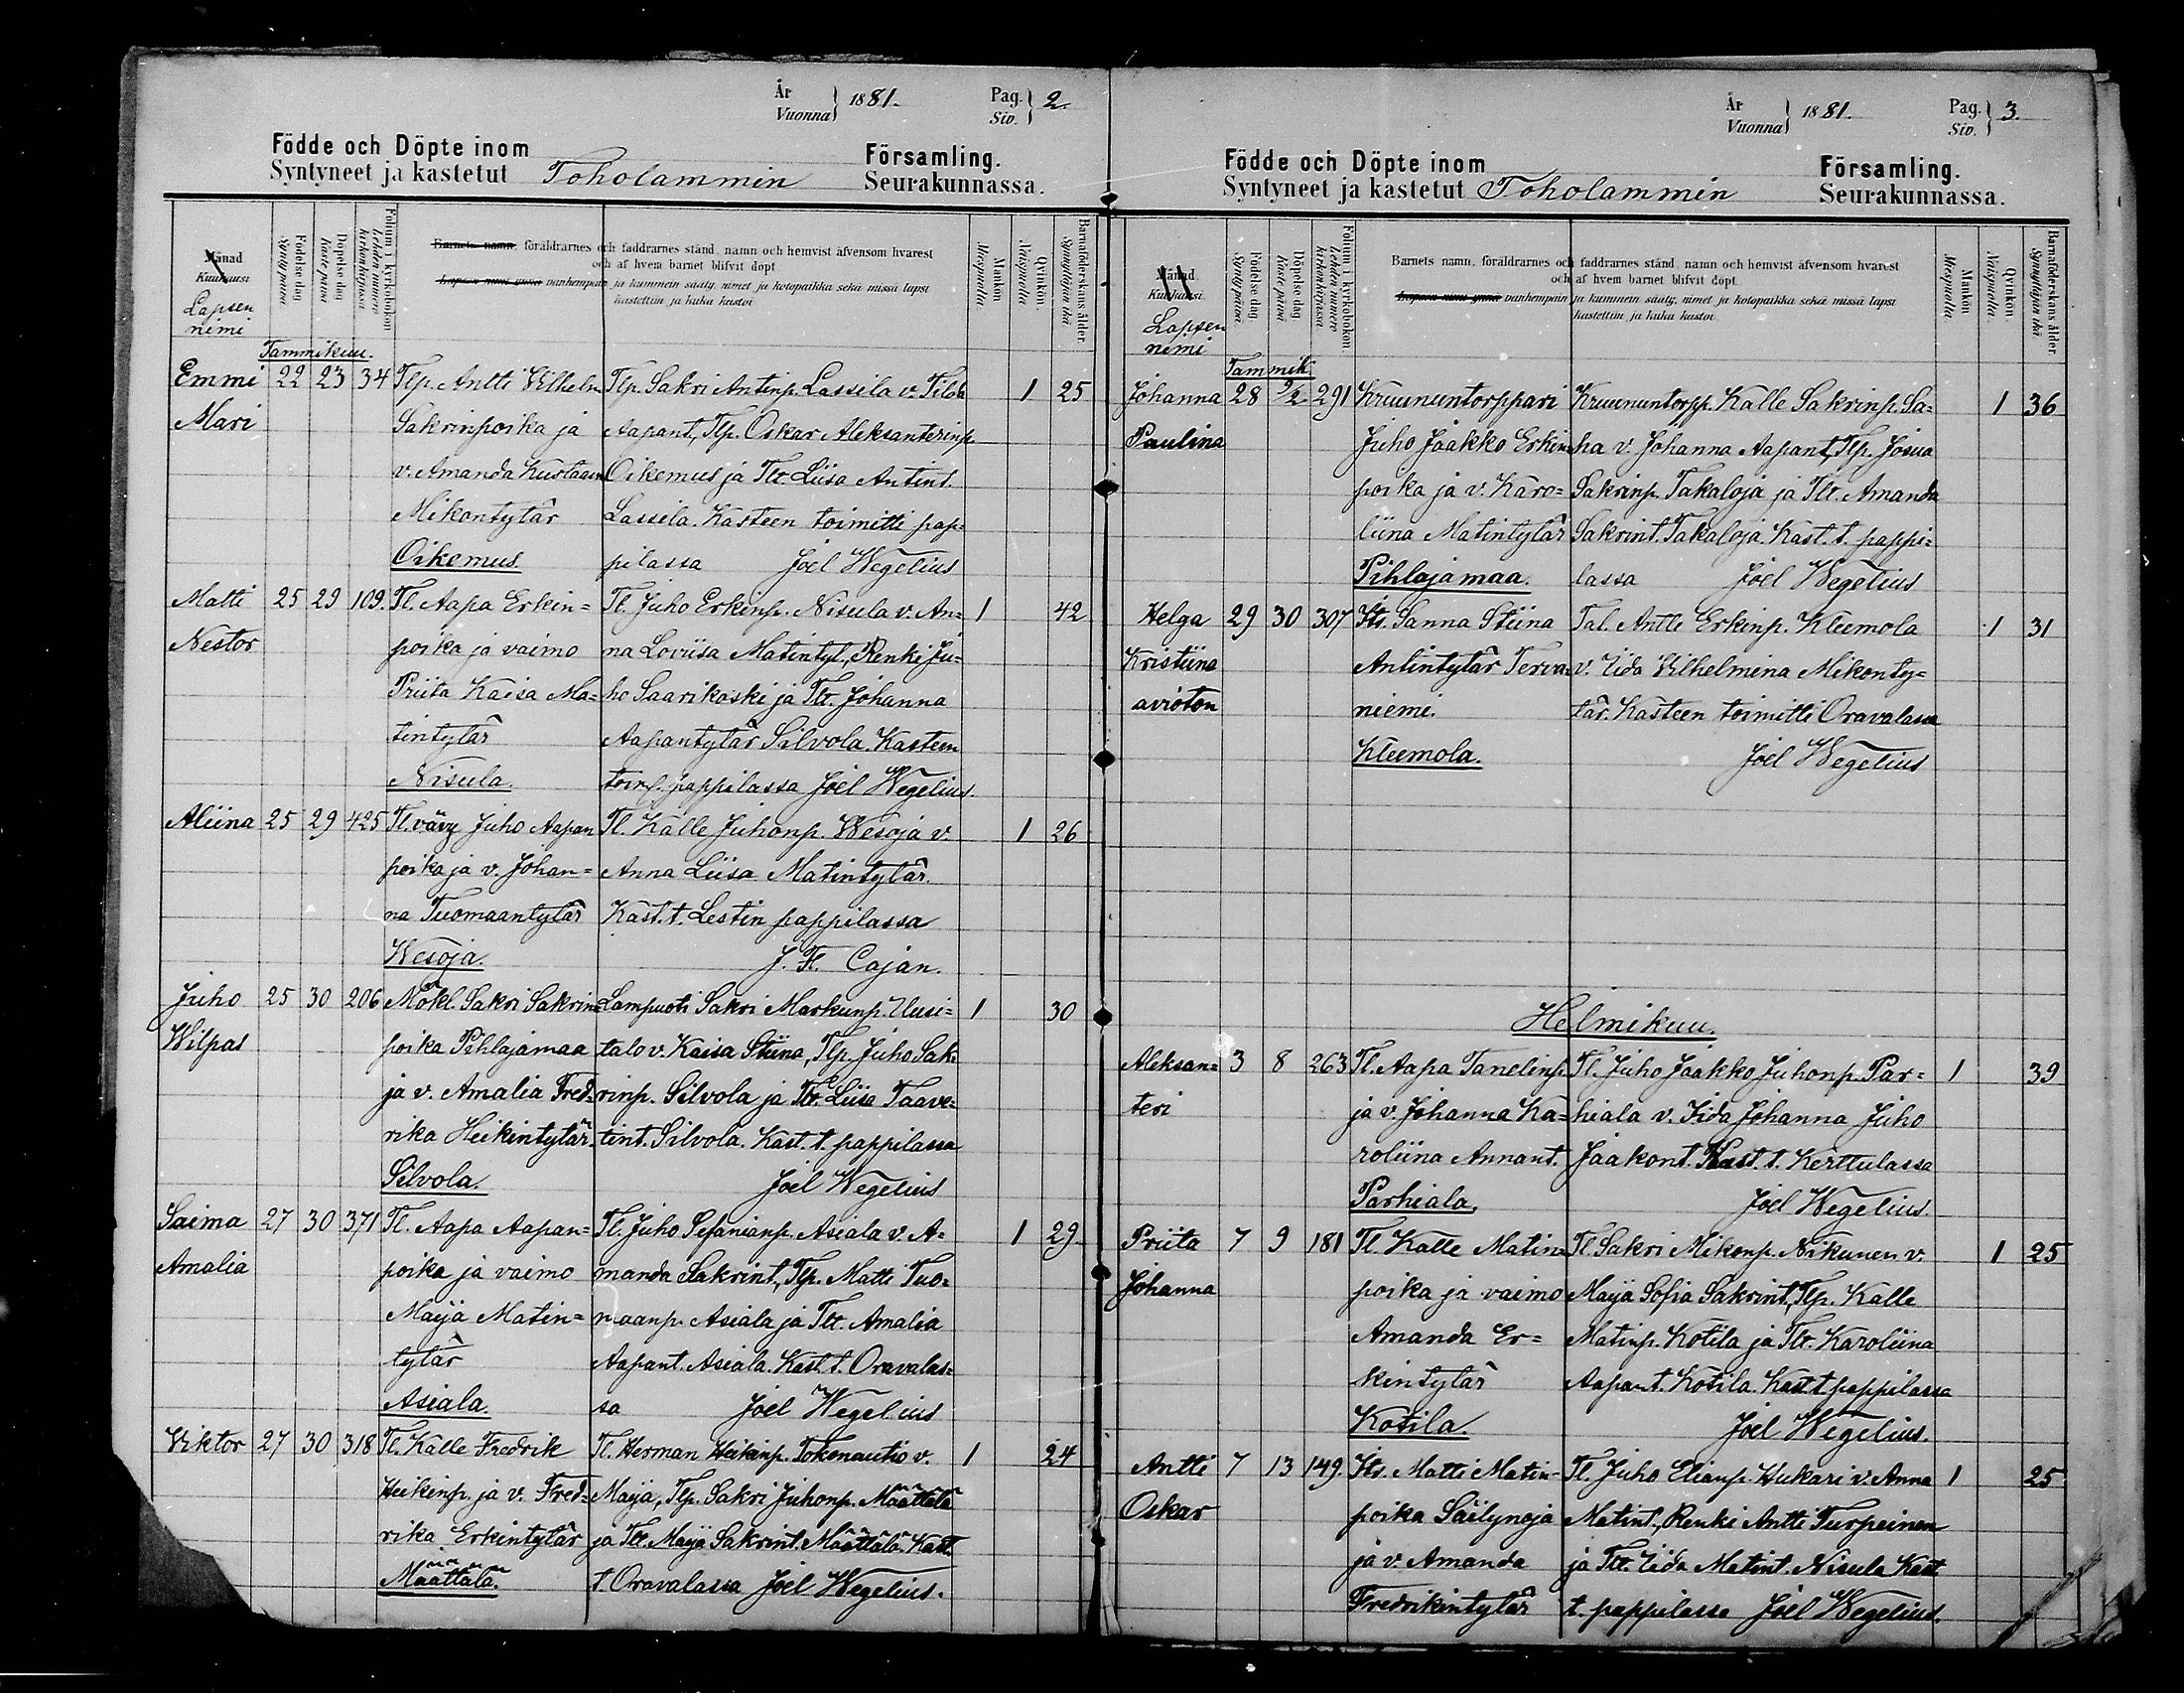 År
Vuonna } 1881.
Pag.
Siv. } 2.
Födde och Döpte inom
Syntyneet ja kastetut Toholammin
Församling.
Seurakunnassa.
Månad
Kuukausi
Lapsen
nimi
Födelse dag
Synty päivä
Döpelse dag
Kaste päivä
Folium i kyrkoboken
Lehden numero kirkonkirjassa
Barnets namn, föräldrarnes och faddrarnes stånd, namn och hemvist äfvensom hvarest
och af hvem barnet blifvit döpt
Lapsen nimi ynnä vanhempain ja kummein sääty, nimet ja kotopaikka sekä missä lapsi
kastettiin ja kuka kastoi
Mankön
Miespuolia
Qvinkön.
Naispuolia
Barnaföderskans ålder.
Synnyttäjän ikä
Tammikuu.
Emmi 22 23 34 Tlp. Antti Vilhelm Tlp. Sakri Antinp. Lassila v. Tilda 1 25
Mari Sakrinpoika ja Aapant., Tlp. Oskar Aleksanterinp.
v. Amanda Kustaava Oikemus ja Ttr. Liisa Antint.
Mikontytär Lassila. Kasteen toimitti pap-
Oikemus. pilassa Joel Wegelius
Matti 25 29 109. Tl. Aapa Erkin= Tl. Juho Erkinp. Nisula v. An= 1 42
Nestor poika ja vaimo na Loviisa Matintyt., Renki Ju=
Priita Kaisa Ma= ho Saarikoski ja Ttr. Johanna
tintytär Aapantytär Silvola. Kasteen
Nisula. toim. pappilassa Joel Wegelius.
Aliina 25 29 425 Tl. vävy Juho Aapan Tl. Kalle Juhonp. Wesoja v. 1 26
poika ja v. Johan= Anna Liisa Matintytär.
na Tuomaantytär Kast. t. Lestin pappilassa
Wesoja. J. F. Cajan.
Juho 25 30 206 Mökl. Sakri Sakrin= Lampuoti Sakri Markunp. Uusi= 1 30
Wilpas poika Pihlajamaa talo v. Kaisa Stiina, Tlp. Juho Sak=
ja v. Amalia Fred= rinp. Silvola ja Ttr. Liisa Taave=
rika Heikintytär. tint. Silvola. Kast. t. pappilassa
Silvola. Joel Wegelius
Saima 27 30 371 Tl. Aapa Aapan= Tl. Juho Sefanianp. Asiala v. A= 1 29
Amalia poika ja vaimo manda Sakrint., Tlp. Matti Tuo=
Maija Matin= maanp. Asiala ja Ttr. Amalia
tytär Aapant. Asiala. Kast. t. Oravalas=
Asiala. sa Joel Wegelius
Viktor 27 30 318 Tl. Kalle Fredrik Tl. Herman Heikinp. Tokonautio v. 1 24
Heikinp. ja v. Fred= Maija, Tlp. Sakri Juhonp. Määttälä
rika Erkintytär ja Ttr. Maija Sakrint. Määttälä. Kast.
Määttälä. t. Oravalassa Joel Wegelius.
År
Vuonna } 1881.
Pag.
Siv. } 3.
Födde och Döpte inom
Syntyneet ja kastetut Toholammin
Församling.
Seurakunnassa.
Månad.
Kuukausi.
Lapsen
nimi
Födelse dag
Synty päivä.
Döpelse dag
Kaste päivä
Folium i kyrkoboken.
Lehden numero kirkonkirjassa
Barnets namn, föräldrarnes och faddrarnes stånd, namn och hemvist äfvensom hvarest
och af hvem barnet blifvit döpt.
Lapsen nimi ynnä vanhempain ja kummein sääty, nimet ja kotopaikka sekä missä lapsi
kastettiin ja kuka kastoi.
Mankön
Miespuolia
Qvinkön.
Naispuolia.
Barnaföderskans ålder.
Synnyttäjän ikä.
Tammik.
Johanna 28 2/2 291 Kruununtorppari Kruununtorpp. Kalle Sakrinp. Sa= 1 36
Paulina Juho Jaakko Erkin= ha v. Johanna Aapant., Tlp. Josua
poika ja v. Karo= Sakrinp. Takaloja ja Ttr. Amanda
liina Matintytär Sakrint. Takaloja. Kast. t. pappi=
Pihlajamaa. lassa Joel Wegelius
Helga 29 30 307 Its. Sanna Stiina Tal. Antti Erkinp. Kleemola 1 31
Kristiina Antintytär Terva= v. Iida Vilhelmina Mikonty=
avioton niemi. tär. Kasteen toimitti Oravalassa
Kleemola. Joel Wegelius
Helmikuu.
Aleksan= 3 8 263 Tl. Aapa Tanelinp. Tl. Juho Jaakko Juhonp. Par= 1 39
teri ja v. Johanna Ka= hiala v. Iida Johanna Juho
roliina Annant. Jaakont. Kast. t. Kerttulassa
Parhiala. Joel Wegelius.
Priita 7 9 181 Tl. Kalle Matin= Tl. Sakri Mikonp. Nikunen v. 1 25
Johanna poika ja vaimo Maija Sofia Sakrint., Tlp. Kalle
Amanda Er= Matinp. Kotila ja Ttr. Karoliina
kintytär Aapant. Kotila. Kast. t. pappilassa
Kotila. Joel Wegelius.
Antti 7 13 149. Its. Matti Matin= Tl. Juho Elianp. Hukari v. Anna 1 25
Oskar poika Säilynoja Matint., Renki Antti Turpeinen
ja v. Amanda ja Ttr. Iida Matint. Nisula Kast
Fredrikintytär t. pappilassa Joel Wegelius.